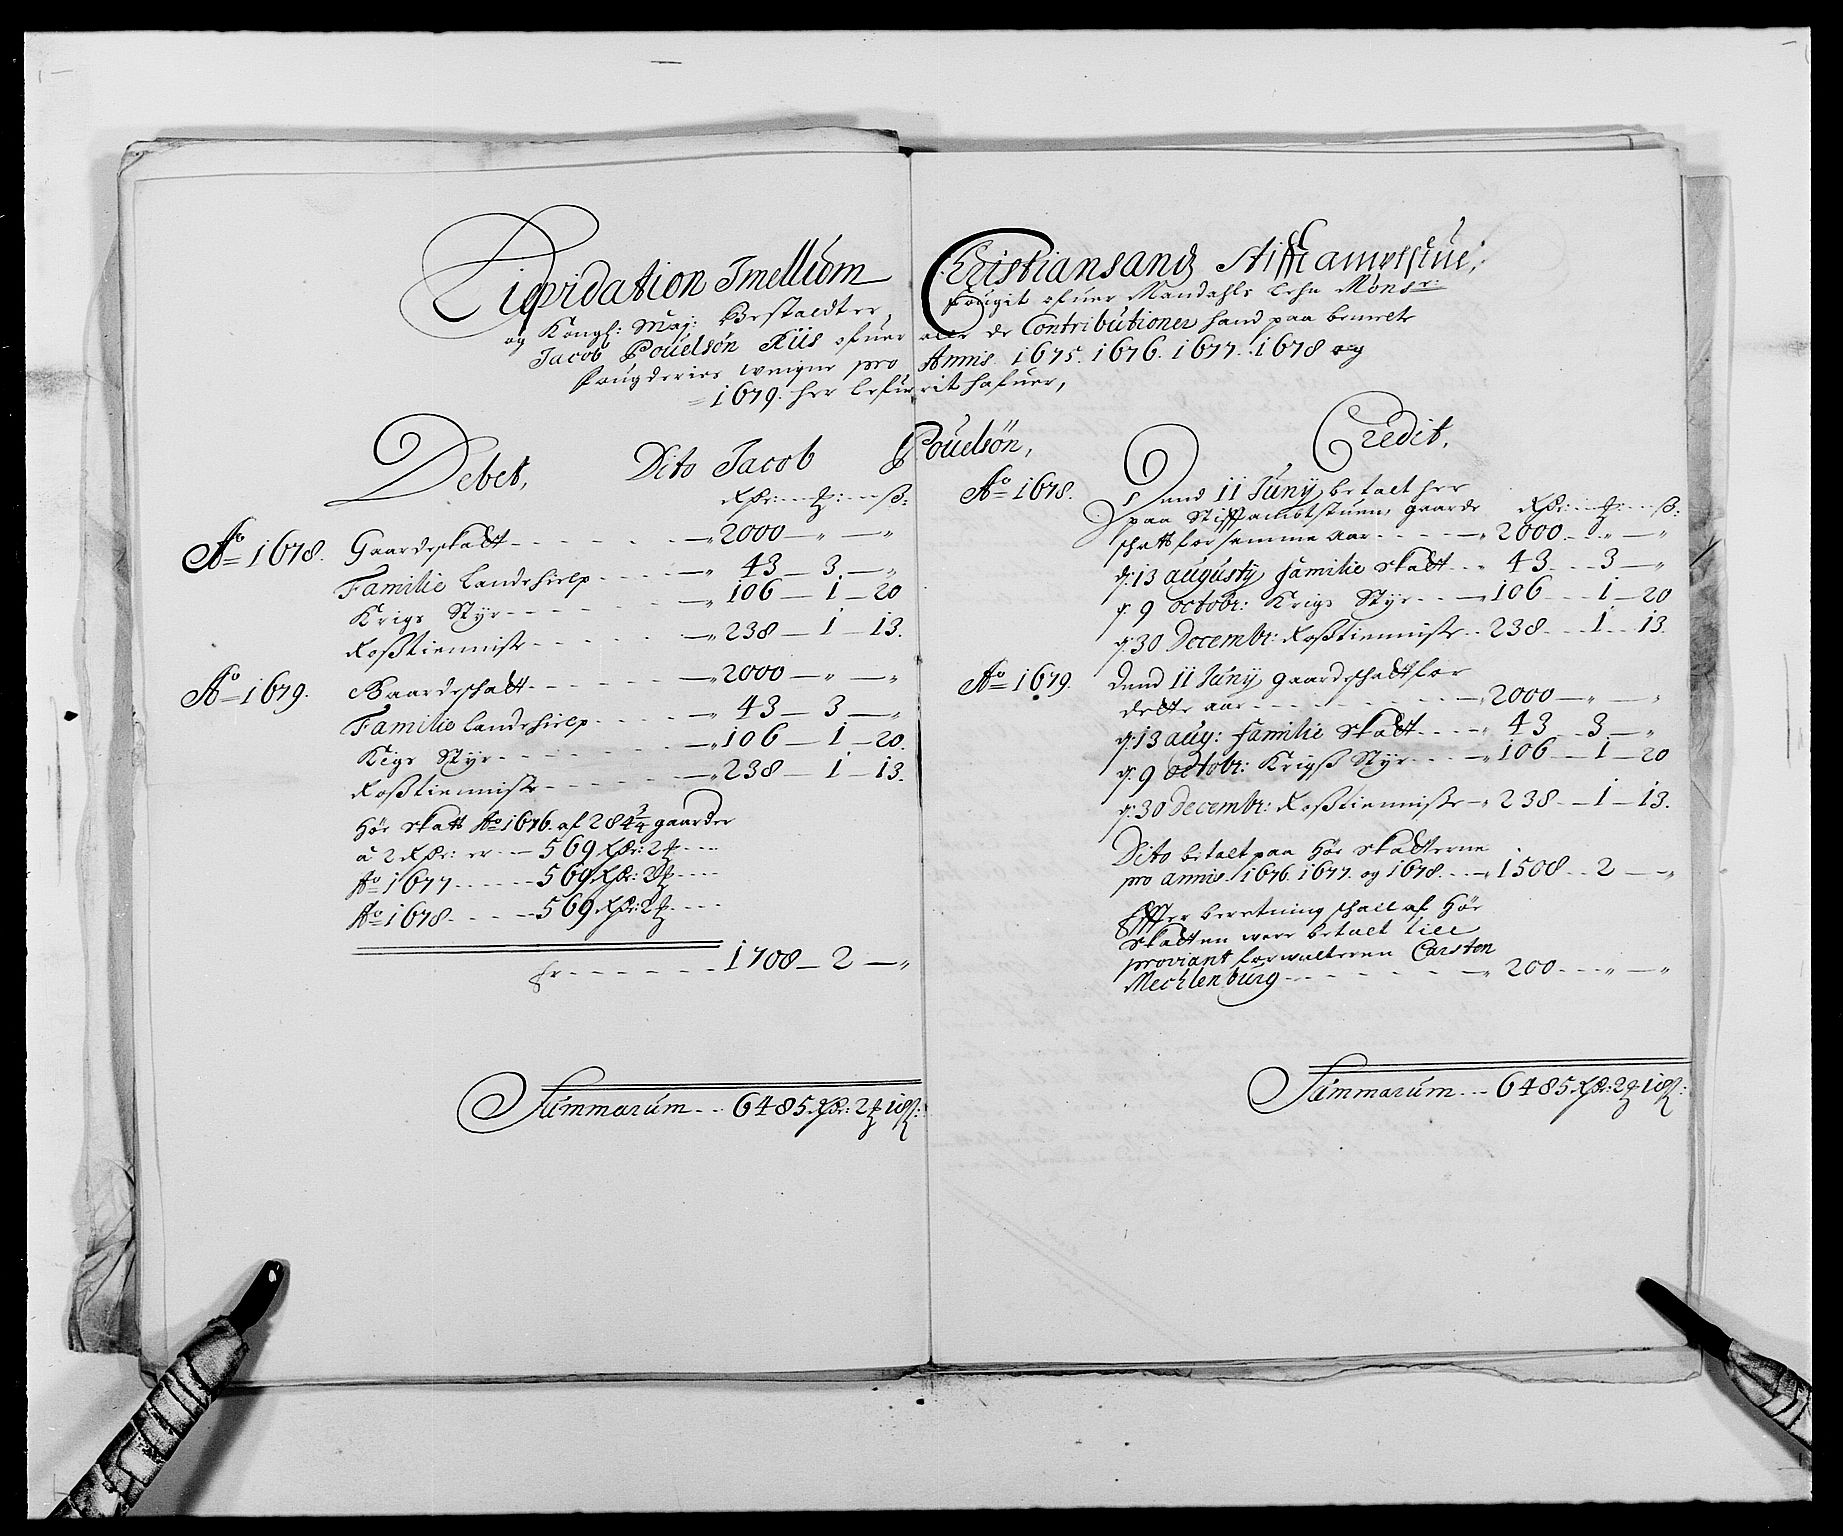 Liqvidation Imellem Christiansands Stifftamptstue,
og Kongl: Maj: Bestaldter, fougit ofuer Mandahls Lehn Monsr:
Jacob Pouelsøn Riis ofuer alle de Contributioner hand paa bemelte
fougderies wegne pro Annis. 1675. 1676. 1677. 1678 og
1679. her lefuerit hafuer,
Debet, Dito Jacob Pouelsøn, Credit,
Rdr: ß:
Ao 1678. Gaardeskatt - 2000 - " - "
Familie Landehielp - 43 - 3 - "
Krigs Styr - 106 - 1 - 20
Rostienniste - 238 - 1 - 13.
Ao 1679. Gaardeschatt - 2000 - " - "
Familie Landehielp - 43 - 3 - "
Kigs Styr - 106 - 1 - 20.
Rostienniste - 238 - 1 - 13.
Hør skatt Ao 1676. af 284 3/4 gaarder
à 2 Rdr: er - 569 Rdr: 2
Ao 1677 - 569 Rdr: 2
Ao 1678 - 569 Rdr: 2
Er - 1708 - 2 - "
Summarum - 6485 Rdr: 2 18 ß:
Ao 1678. Dend 11 Juny betalt her
paa Stiffamptstuen gaarde Rdr: ß:
schatt for samme aar - 2000 - " - "
d: 13 augusty familie skatt - 43 - 3 - "
d: 9 octobr: Krigs Styr - 106 - 1 - 20
d: 30 Decembr: Rostienniste - 238 - 1 - 13.
Ao 1679. Dend 11 Juny gaardeschatt for
dette aar - 2000 - " - "
d: 13 aug: familie skatt - 43 - 3 - "
d: 9 octobr: Krigß Styr - 106 - 1 - 20
d: 30 Decembr: Rostienniste - 238 - 1 - 13.
Dito betalt paa Hør skatterne
pro annis. 1676. 1677. og 1678. - 1508 - 2 - "
Effter beretning schall af Hør
skatten were betalt till
proviant forwalteren Carsten
Mechlenburg - 200 - " - "
Summarum - 6485 Rdr: 2 18 ß: